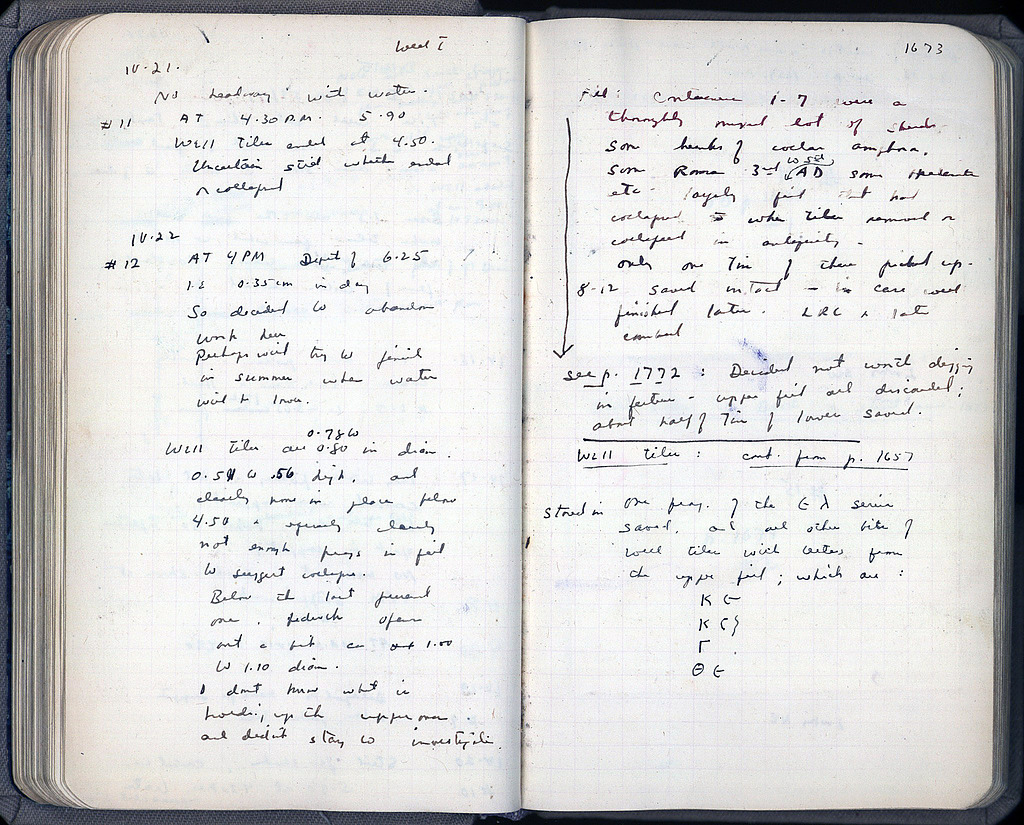 Well I
IV.21.
No headway with water.
#11 AT 4.30 P.M. 5.90
Well tiles ended at 4.50.
Uncertain still whether ended
or collapsed
IV.22
#12 AT 4 PM Depth of 6.25
i.e. 0.35cm in day
So decided to abandon
work here
Perhaps will try to finish
in summer when water
will be lower.
0.78 to
Well tiles are 0.80 in diam.
0.54 to .56 high. and
clearly none in place below
4.50 clearly
not enough frags in fill
to suggest collapse.
Below the last preserved
one, bedrock opens
out a bit 1.00
to 1.10 diam.
I don't know what is
holding up the upper ones
and didn't stay to investigate.
1673
Fill: Containers 1-7 were a
thoroughly mixed lot of sherds
some hunks of coclear amphora,
some Roman 3rd to 5th AD some
etc - largely fill that had
collapsed when tiles removed or
collapsed in antiquity -
only one Tin of these picked up -
8-12 saved intact - in case well
finished later. LRC & late
combed
see p. 1772 : Decided not worth digging
in future - upper fill all discarded;
about half of Tin of lower saved.
Well tiles : cont. from p. 1657
stored in one frag. of the Ε λ series
saved, and all other bits of
well tiles with letters from
the upper fill; which are :
Κ Ε
Κ Γ}
Γ
Θ Ε